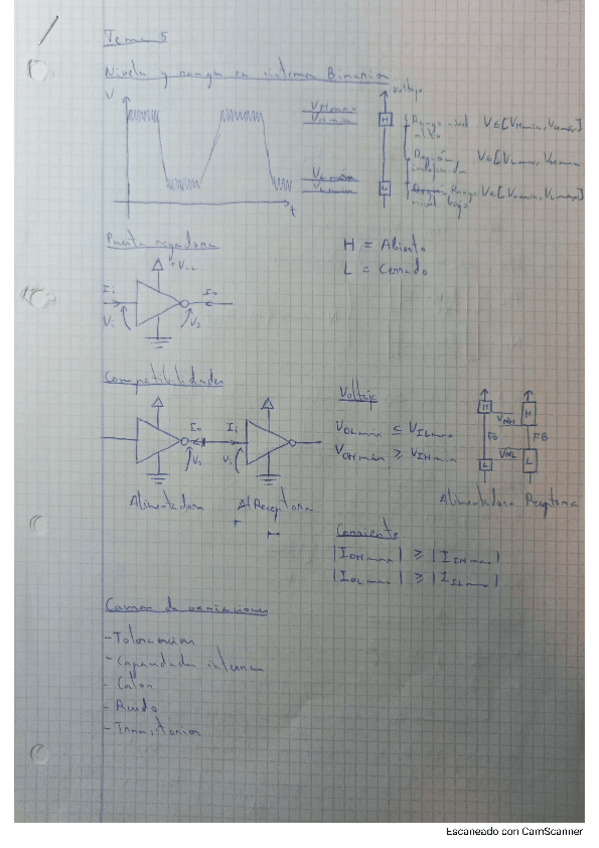 Tema 5
Niveles y rangos en sistema Binario
V
t
VHmax
VHmin
VLmax
VLmin
voltaje
H
L
Rango nivel alto V∈[VHmin, VHmax]
Región indefinida V∈[VLmax, VHmin
Rango nivel bajo V∈[VLmin, VLmax]
Puerta negadora
+Vcc
Ii
Io
Vi
Vo
H = Abierto
L = Cerrado
Compatibilidades
Io
Ii
Vo
Vi
Alimentadora
Receptora
Voltaje
VOLmax ≤ VILmax
VOHmin ≥ VIHmin
H
H
VNH
FB
FB
VNL
L
L
Alimentadora Receptora
Corriente
|IOHmax| ≥ |IIHmax|
|IOLmax| ≥ |IILmax|
Causas de variaciones
-Tolerancias
-Capacidades internas
-Calor
-Ruido
-Transitorios
Escaneado con CamScanner